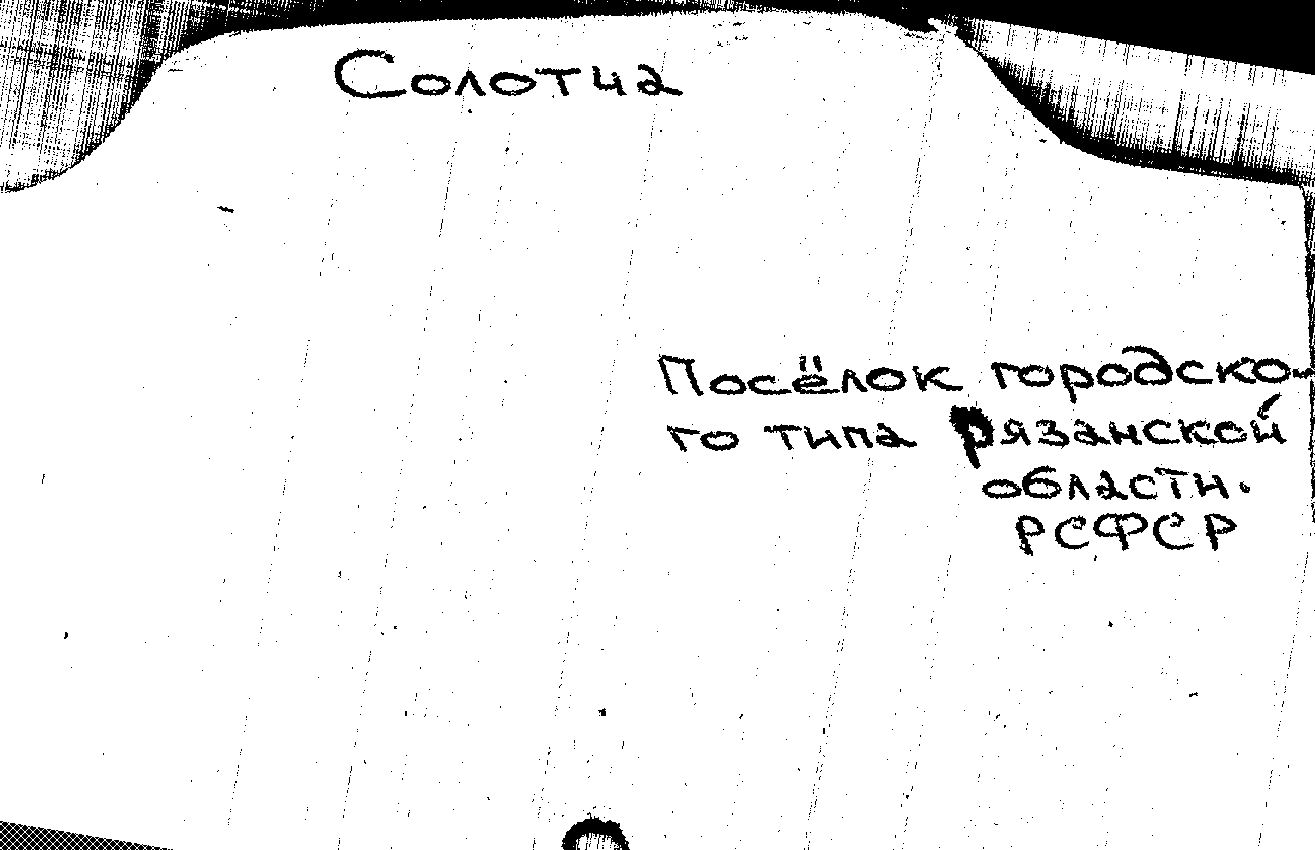 Солотча
Посёлок городско-
го типа Рязанской
области.
РСФСР